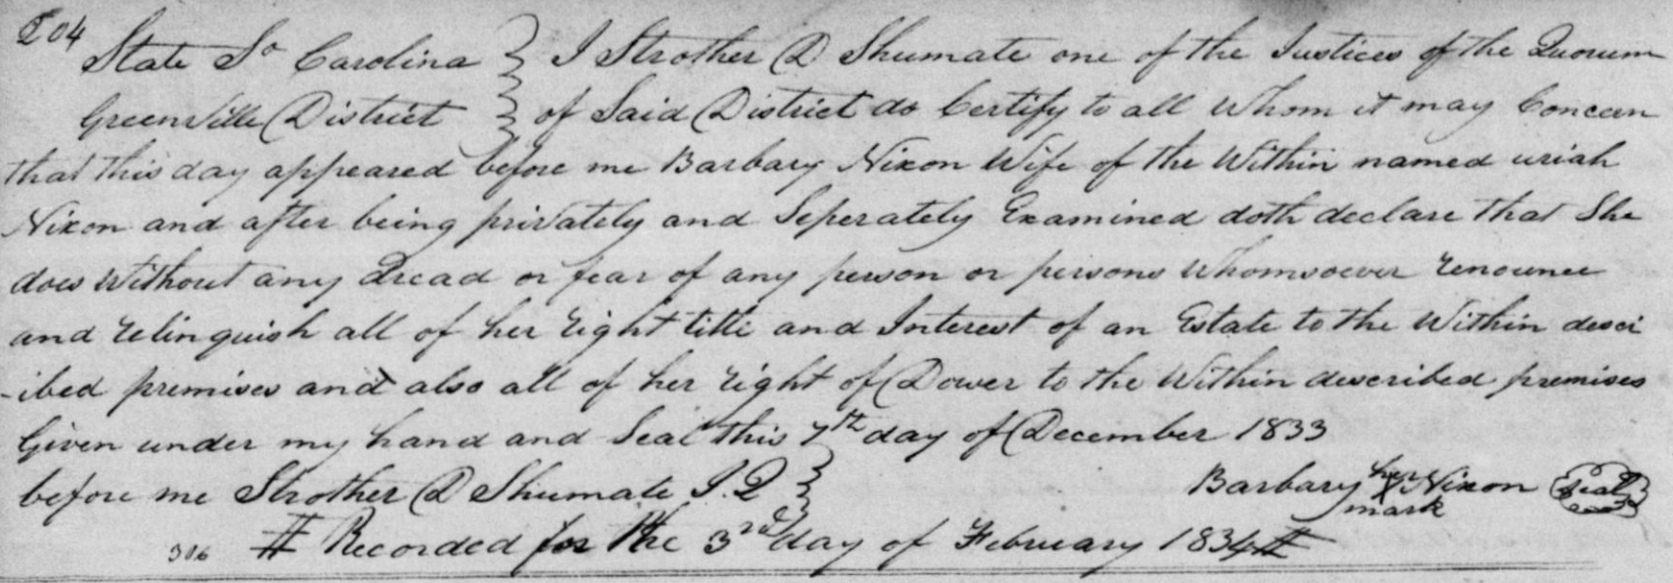 204
State So Carolina } I Strother D Shumate one of the Justices of the Quorum
Greenville District } of Said District do Certify to all Whom it may Concern
that this day appeared before me Barbary Nixon Wife of the Within named uriah
Nixon and after being privately and Seperately Examined doth declare that She
does Without any dread or fear of any person or persons Whomsoever renounce
and relinquish all of her right title and Interest of an Estate to the Within descr
-ibed premises and also all of her right of Dower to the Within described premises
Given under my hand and Seal this 7th day of December 1833
before me Strother D Shumate J.Q } Barbary her X Nixon Seal
mark
306 Recorded for the 3rd day of February 1834